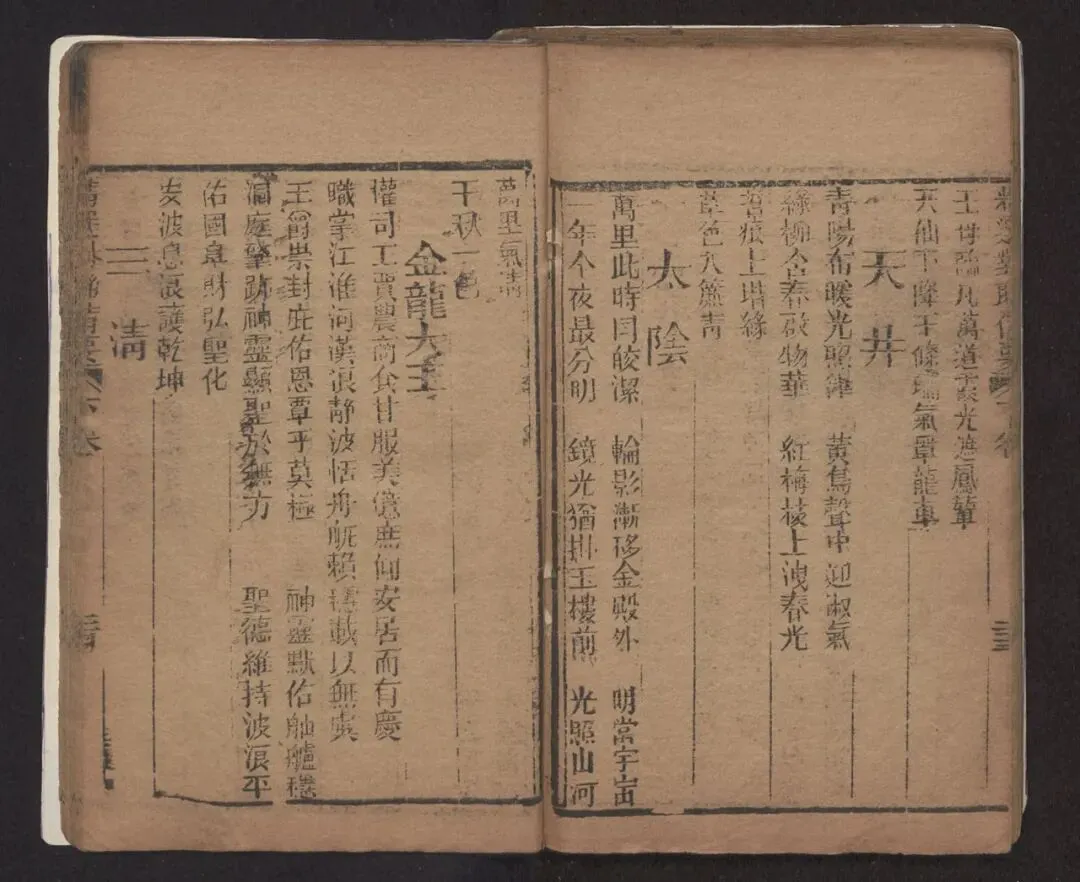 王母臨凡萬道霞光遮鳳輦
天仙下降千條瑞氣罩龍車
天井
青陽布暖光照津 黃鳥聲中迎淑氣
綠柳含春啟物華 紅梅枝上洩春光
苔痕上堦綠
草色入簾青
太陰
萬里此時同皎潔 輪影漸移金殿外 明當宇宙
一年今夜最分明 鏡光猶掛玉樓前 光照山河
萬里氣清
千秋一色
金龍大王
權司工賈農商食甘服美億庶向安居而有慶
職掌江淮河漢浪靜波恬舟航賴濟載以無虞
王爵崇封庇佑恩覃乎莫極 神靈默佑舳艫穩
洞庭肇跡神靈顯聖於無方 聖德維持波浪平
佑國阜財弘聖化
安波息浪護乾坤
三清
下卷